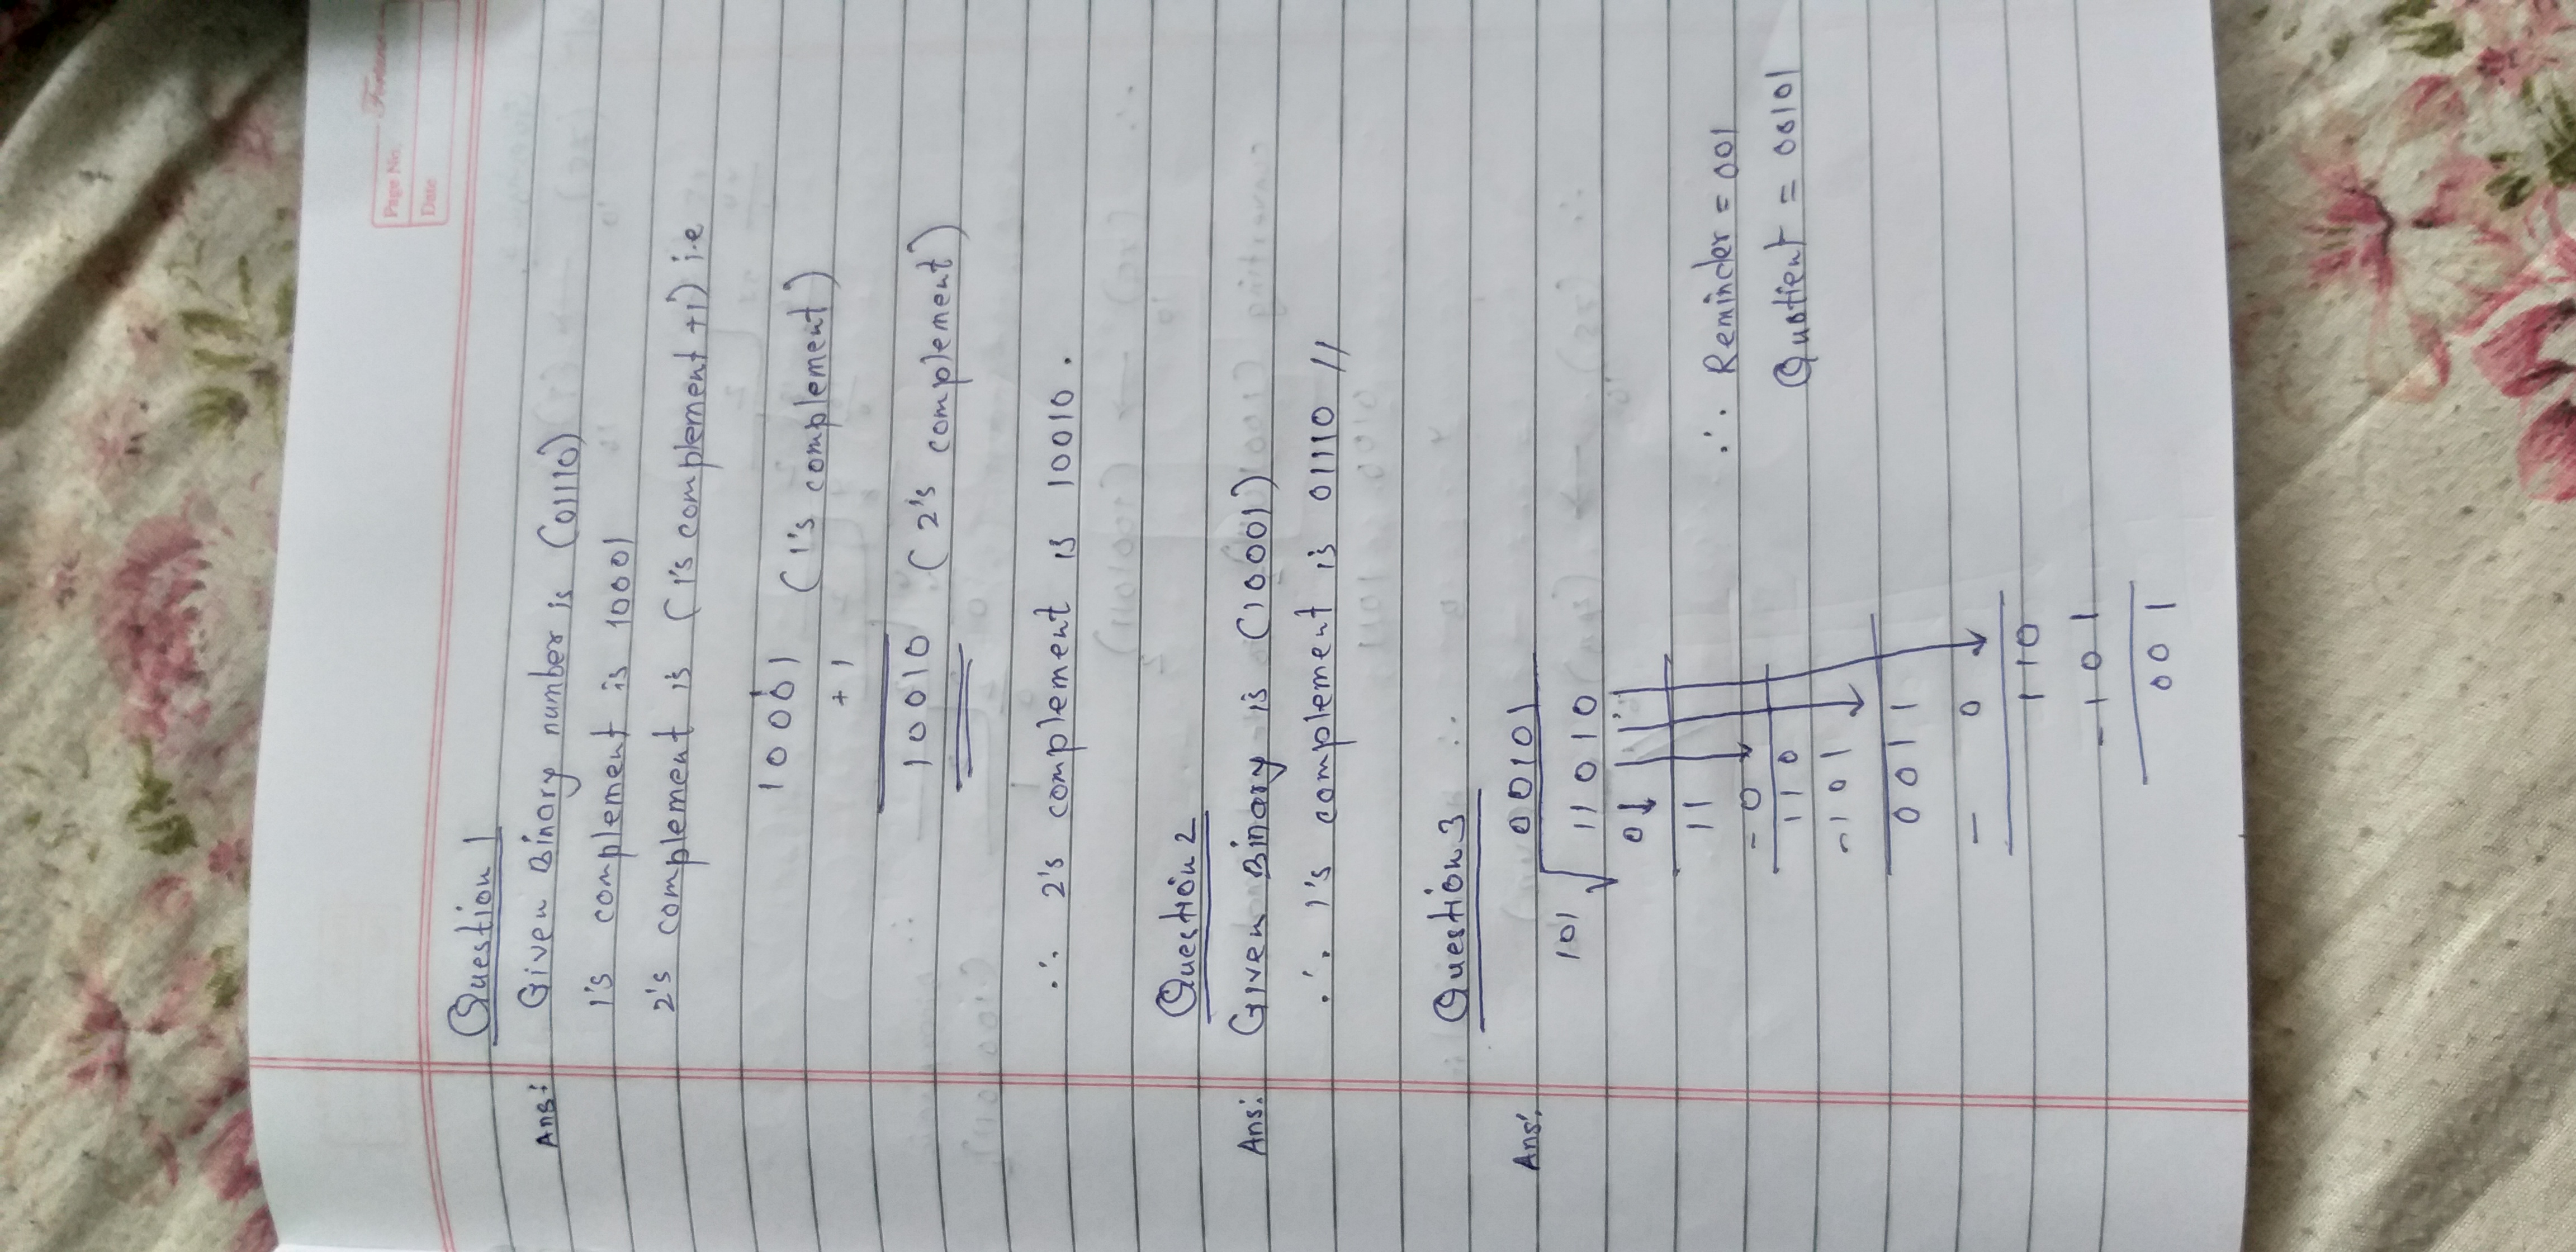 Fortune
Page No.
Date
Question 1
Ans: Given Binary number is (01110)
1's complement is 10001
2's complement is (1's complement +1) i.e
1
10001 (1's complement)
+ 1
10010 (2's complement)
∴ 2's complement is 10010.
Question 2
Ans: Given Binary is (10001)
∴ 1's complement is 01110 //
Question 3
Ans: 00101
101 √ 11010
0↓
11
- 0
110
-101
0011
- 0
110
-101
001
∴ Reminder = 001
Quotient = 00101